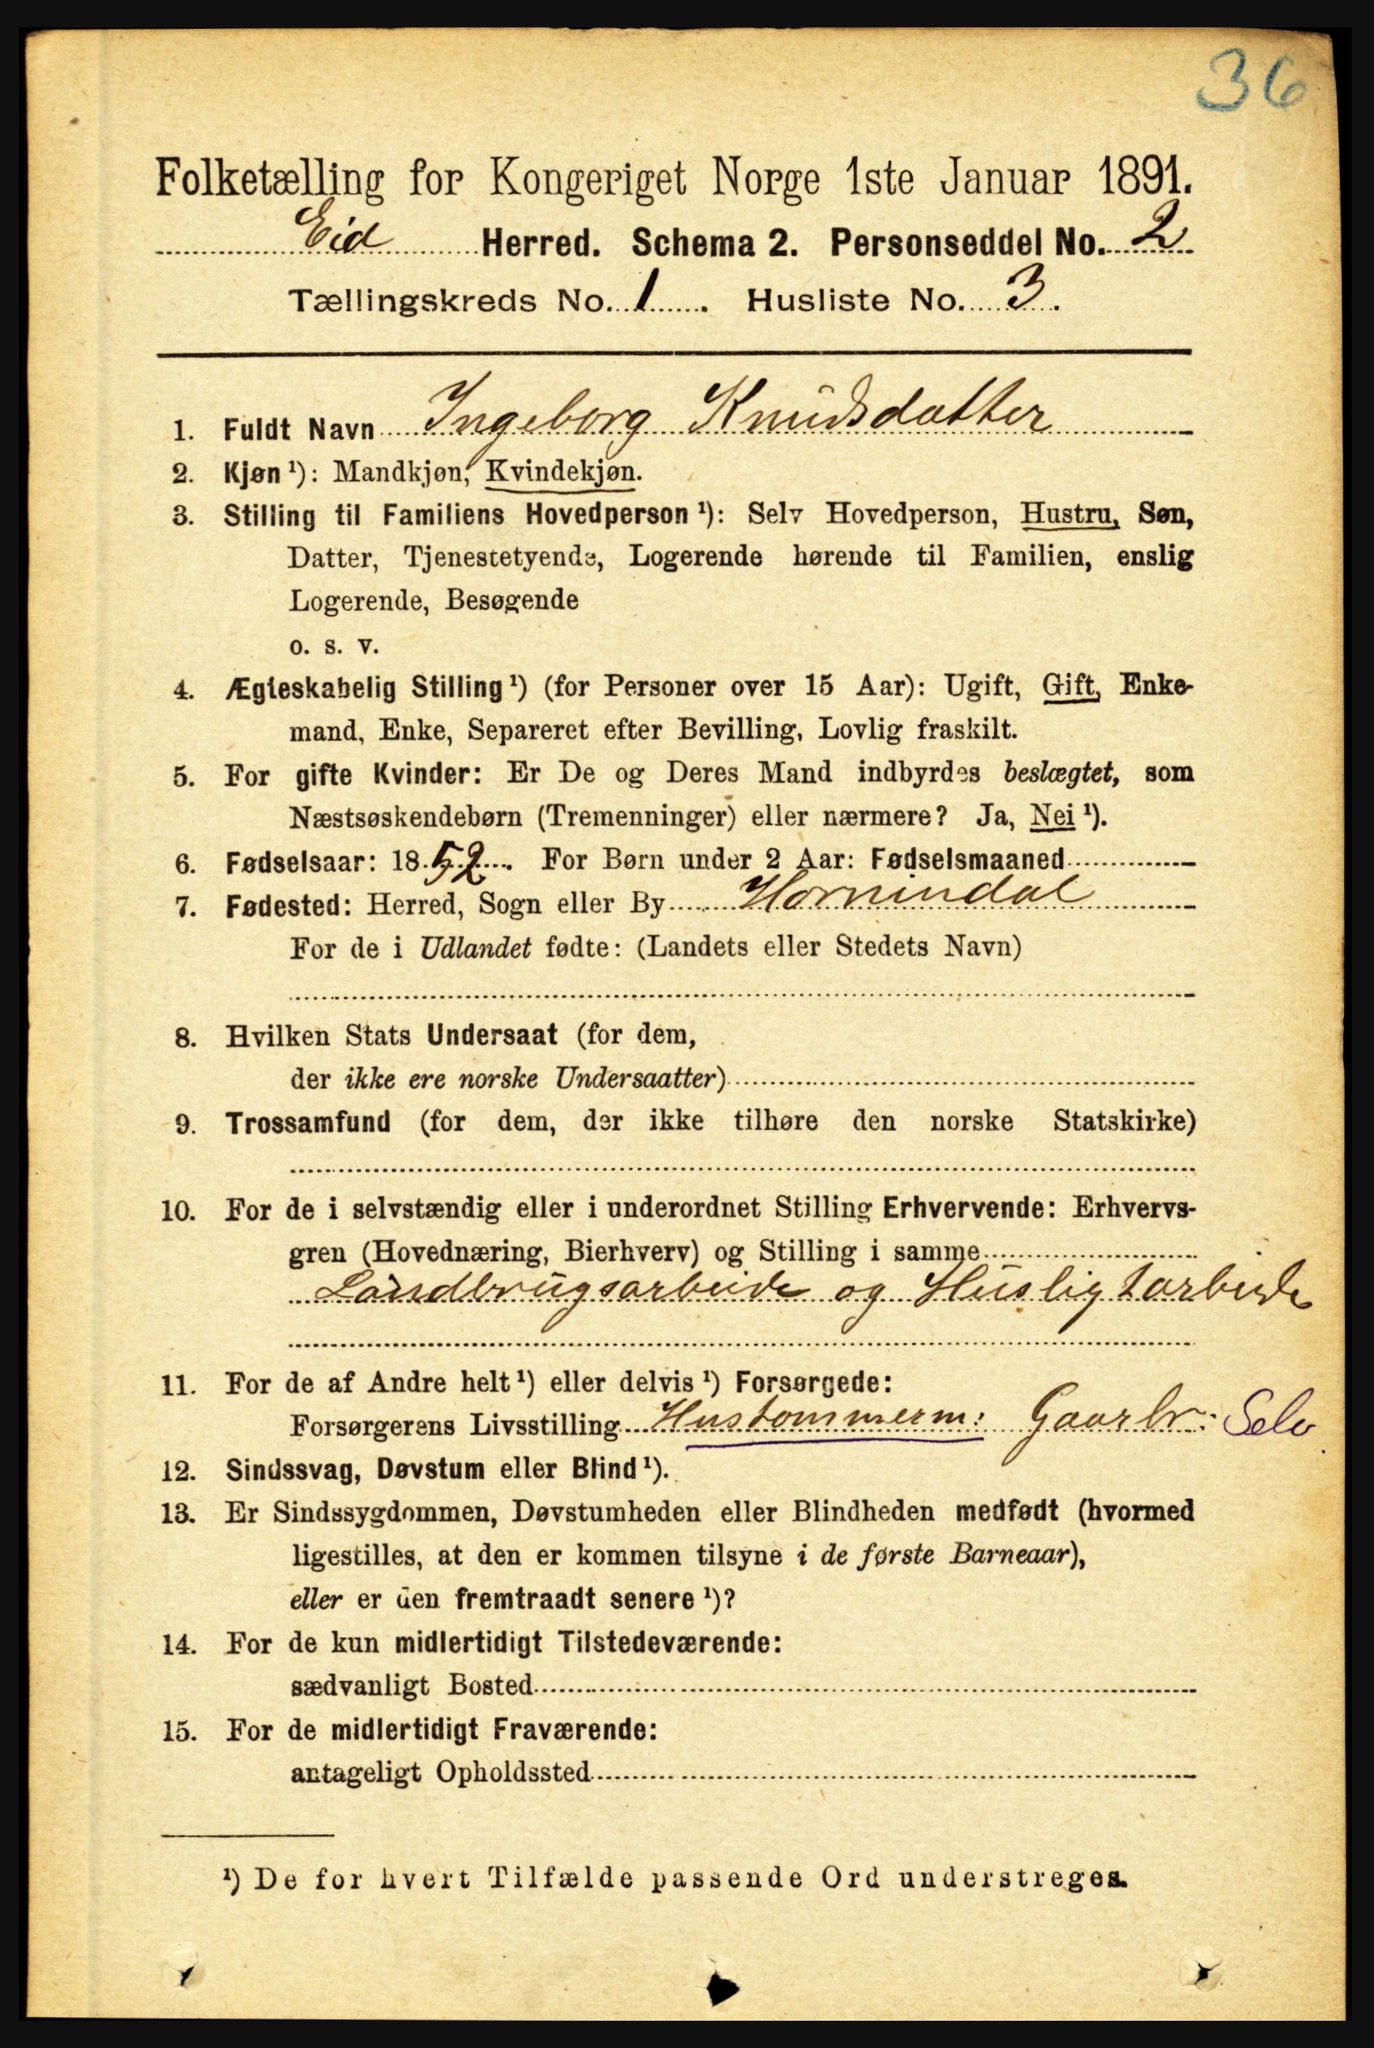 36
Folketælling for Kongeriget Norge 1ste Januar 1891.
Eid Herred. Schema 2. Personseddel No. 2
Tællingskreds No. 1. Husliste No. 3.
1. Fuldt Navn Ingeborg Knudsdatter
2. Kjøn ¹): Mandkjøn, Kvindekjøn.
3. Stilling til Familiens Hovedperson ¹): Selv Hovedperson, Hustru, Søn,
Datter, Tjenestetyende, Logerende hørende til Familien, enslig
Logerende, Besøgende
o. s. v.
4. Ægteskabelig Stilling ¹) (for Personer over 15 Aar): Ugift, Gift, Enke-
mand, Enke, Separeret efter Bevilling, Lovlig fraskilt.
5. For gifte Kvinder: Er De og Deres Mand indbyrdes beslægtet, som
Næstsøskendebørn (Tremenninger) eller nærmere? Ja, Nei ¹).
6. Fødselsaar: 1852. For Børn under 2 Aar: Fødselsmaaned
7. Fødested: Herred, Sogn eller By Hornindal
For de i Udlandet fødte: (Landets eller Stedets Navn)
8. Hvilken Stats Undersaat (for dem,
der ikke ere norske Undersaatter)
9. Trossamfund (for dem, der ikke tilhøre den norske Statskirke)
10. For de i selvstændig eller i underordnet Stilling Erhvervende: Erhvervs-
gren (Hovednæring, Bierhverv) og Stilling i samme
Landbrugsarbeide og Husligtarbeide
11. For de af Andre helt ¹) eller delvis ¹) Forsørgede:
Forsørgerens Livsstilling Hustommerm: Gaarbr: Selv
12. Sindssvag, Døvstum eller Blind ¹).
13. Er Sindssygdommen, Døvstumheden eller Blindheden medfødt (hvormed
ligestilles, at den er kommen tilsyne i de første Barneaar),
eller er den fremtraadt senere ¹)?
14. For de kun midlertidigt Tilstedeværende:
sædvanligt Bosted
15. For de midlertidigt Fraværende:
antageligt Opholdssted
¹) De for hvert Tilfælde passende Ord understreges.